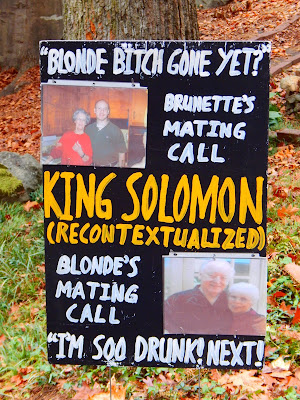 "BLONDE BITCH GONE YET?"
BRUNETTE'S
MATING
CALL
KING SOLOMON
(RECONTEXTUALIZED)
BLONDE'S
MATING
CALL
"I'M SOO DRUNK! NEXT!